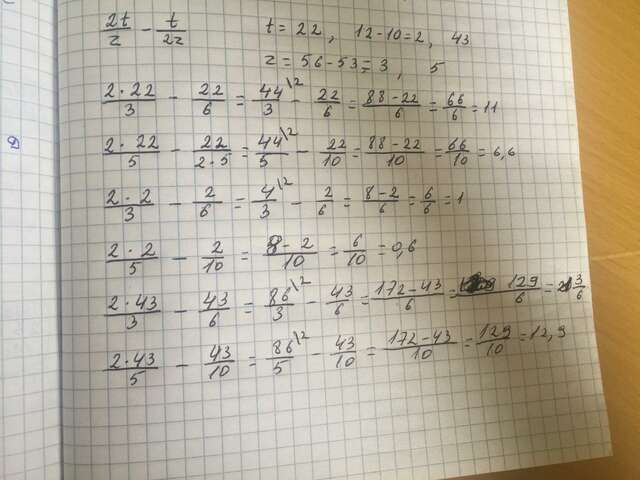 2t/z - t/2z t = 22, 12-10=2, 43
z = 56-53=3, 5
2·22/3 - 22/6 = 44\2/3 - 22/6 = 88-22/6 = 66/6 = 11
2·22/5 - 22/2·5 = 44\2/5 - 22/10 = 88-22/10 = 66/10 = 6,6
2·2/3 - 2/6 = 4\2/3 - 2/6 = 8-2/6 = 6/6 = 1
2·2/5 - 2/10 = 8-2/10 = 6/10 = 0,6
2·43/3 - 43/6 = 86\2/3 - 43/6 = 172-43/6 = 129/6 = 21 3/6
2·43/5 - 43/10 = 86\2/5 - 43/10 = 172-43/10 = 129/10 = 12,9